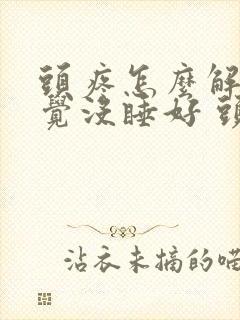 頭疼怎麼解
覺沒睡好 頭
沾衣未摘的喵